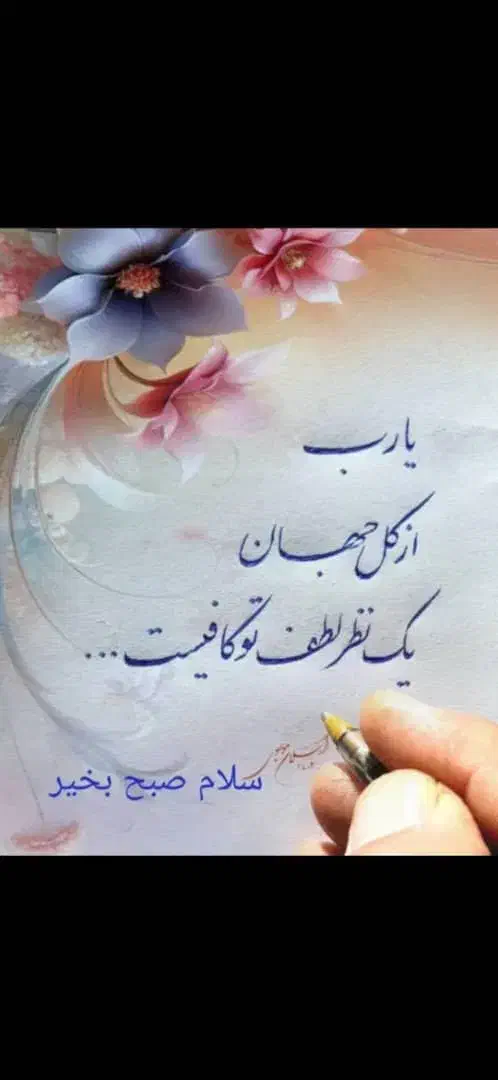 یارب
از کل جهان
یک نظر لطف تو کافیست...
سلام صبح بخیر